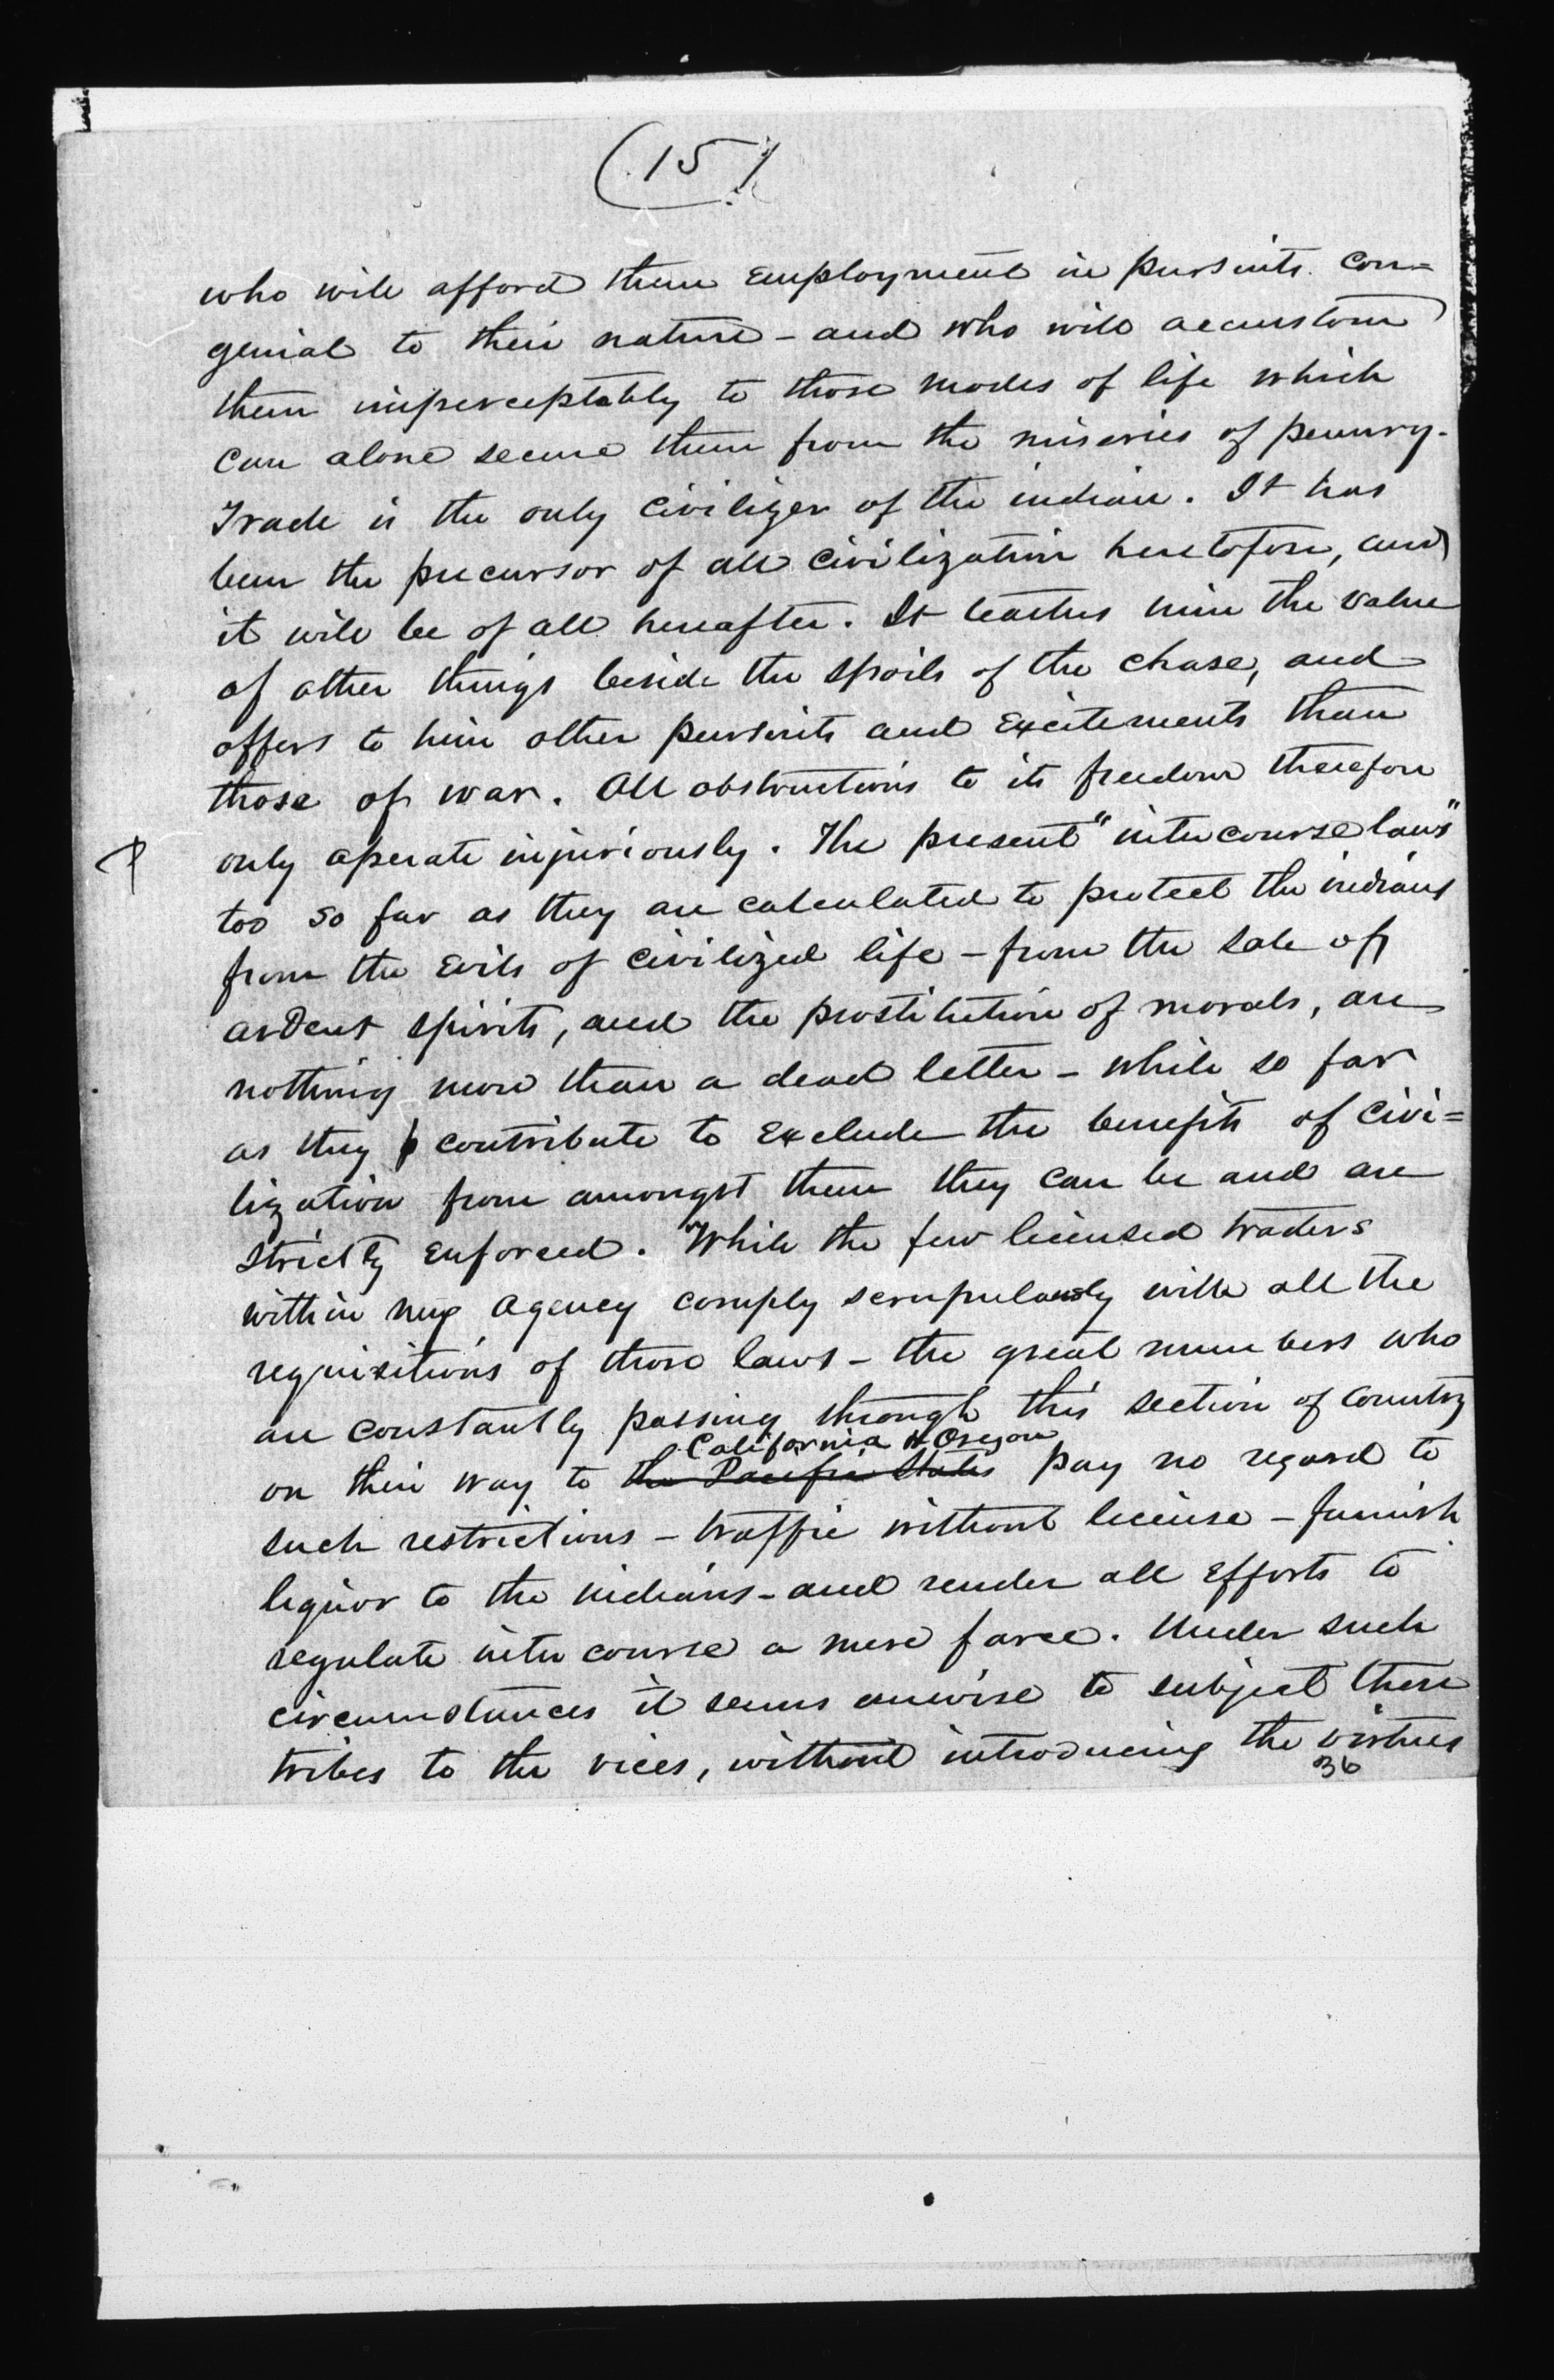 (15)
who will afford them employment in pursuits con=
genial to their nature - and who will accustom
them imperceptably to those modes of life which
can alone secure them from the miseries of penury.
Trade is the only civilizer of the indian. It has
been the precursor of all civilization heretofore, and
it will be of all hereafter. It teaches him the value
of other things beside the spoils of the chase, and
offers to him other pursuits and excitements than
those of war. All obstructions to its freedom therefore
only operate injuriously. The present "intercourse laws"
too so far as they are calculated to protect the indians
from the evils of civilized life - from the sale of
ardent spirits, and the prostitution of morals, are
nothing more than a dead letter - while so far
as they contribute to exclude the benefits of civi=
lization from amongst them they can be and are
strictly enforced. While the few licensed traders
within my agency comply scrupulously with all the
requisitions of those laws - the great numbers who
are constantly passing through this section of country
California & Oregon
on their way to the Pacific States pay no regard to
such restrictions - traffic without license - furnish
liquor to the indians - and render all efforts to
regulate intercourse a mere farce. Under such
circumstances it seems unwise to subject these
tribes to the vices, without introducing the virtues
36